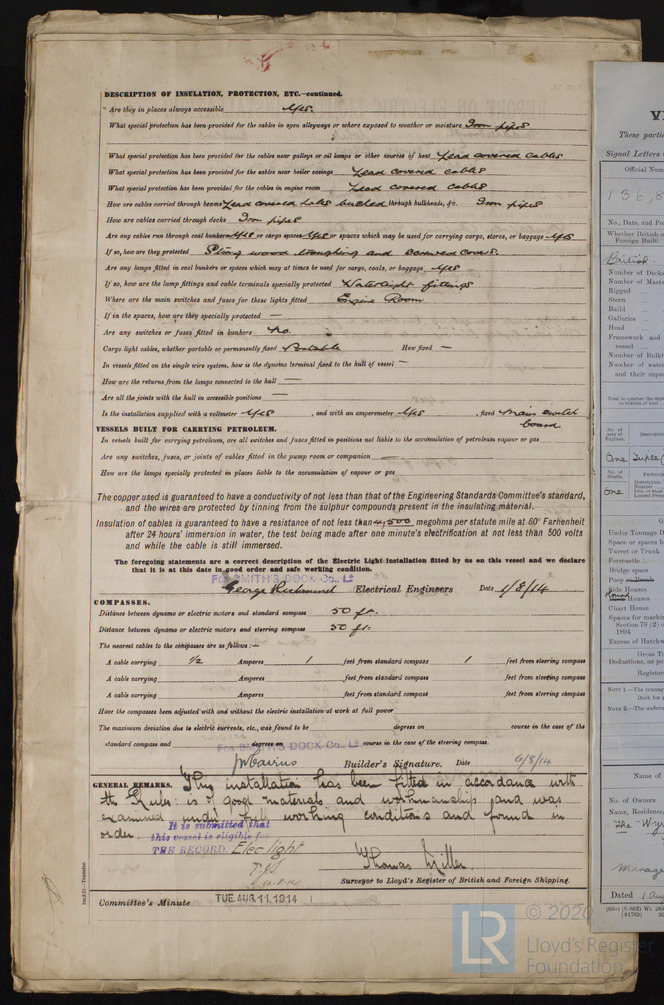 DESCRIPTION OF INSULATION, PROTECTION, ETC.—continued.
Are they in places always accessible Yes.
What special protection has been provided for the cables in open alleyways or where exposed to weather or moisture Iron pipes
What special protection has been provided for the cables near galleys or oil lamps or other sources of heat Lead covered cables
What special protection has been provided for the cables near boiler casings Lead covered cables
What special protection has been provided for the cables in engine room Lead covered cables
How are cables carried through beams Lead covered holes bushed through bulkheads, &c. Iron pipes
How are cables carried through decks Iron pipes
Are any cables run through coal bunkers Yes or cargo spaces Yes or spaces which may be used for carrying cargo, stores, or baggage Yes
If so, how are they protected Strong wood troughing and screwed covers.
Are any lamps fitted in coal bunkers or spaces which may at times be used for cargo, coals, or baggage Yes
If so, how are the lamp fittings and cable terminals specially protected Watertight fittings
Where are the main switches and fuses for these lights fitted Engine Room
If in the spaces, how are they specially protected —
Are any switches or fuses fitted in bunkers No.
Cargo light cables, whether portable or permanently fixed Portable How fixed —
In vessels fitted on the single wire system, how is the dynamo terminal fixed to the hull of vessel —
How are the returns from the lamps connected to the hull —
Are all the joints with the hull in accessible positions —
Is the installation supplied with a voltmeter Yes , and with an amperemeter Yes , fixed Main switch board
VESSELS BUILT FOR CARRYING PETROLEUM.
In vessels built for carrying petroleum, are all switches and fuses fitted in positions not liable to the accumulation of petroleum vapour or gas
Are any switches, fuses, or joints of cables fitted in the pump room or companion
How are the lamps specially protected in places liable to the accumulation of vapour or gas
The copper used is guaranteed to have a conductivity of not less than that of the Engineering Standards Committee's standard,
and the wires are protected by tinning from the sulphur compounds present in the insulating material.
Insulation of cables is guaranteed to have a resistance of not less than megohms per statute mile at 60° Farhenheit
after 24 hours' immersion in water, the test being made after one minute's electrification at not less than 500 volts
and while the cable is still immersed.
The foregoing statements are a correct description of the Electric Light installation fitted by us on this vessel and we declare
that it is at this date in good order and safe working condition.
FOR SMITH'S DOCK CO., Ld
George Electrical Engineers Date 1/8/14
COMPASSES.
Distance between dynamo or electric motors and standard compass 50 ft.
Distance between dynamo or electric motors and steering compass 50 ft.
The nearest cables to the compasses are as follows:—
A cable carrying 1/2 Amperes 1 feet from standard compass 1 feet from steering compass
A cable carrying Amperes feet from standard compass feet from steering compass
A cable carrying Amperes feet from standard compass feet from steering compass
Have the compasses been adjusted with and without the electric installation at work at full power
The maximum deviation due to electric currents, etc., was found to be degrees on course in the case of the
standard compass and degrees on course in the case of the steering compass.
FOR SMITH'S DOCK CO., Ld
Builder's Signature. Date 6/8/14
GENERAL REMARKS. This installation has been fitted in accordance with
the Rules: is of good materials and workmanship, and was
examined under full working conditions and found in
order.
It is submitted that
this vessel is eligible for
THE RECORD Elec light
10.8.14
Thomas
Surveyor to Lloyd's Register of British and Foreign Shipping.
Committee's Minute TUE. AUG. 11. 1914
These parti
Signal Letters
Official Num
136,8
No., Date, and Po
Whether British o
Foreign Built
British
Number of Decks
Number of Masts
Rigged
Stern
Build
Galleries
Head
Framework and
vessel
Number of Bulk
Number of water
and their capac
One
One
Under Tonnage D
Space or spaces b
Turret or Trunk
Forecastle
Bridge space
Poop
Side Houses
Houses
Chart House
Spaces for machin
Section 78 (2) o
1894
Excess of Hatchw
Gross To
Deductions, as pe
Register
NOTE 1.—The tonnag
NOTE 2.—The under
Name of
No. of Owners
Name, Residence,
The
Manage
Dated 1 Aug
LR
© 2020
Lloyd's Register
Foundation